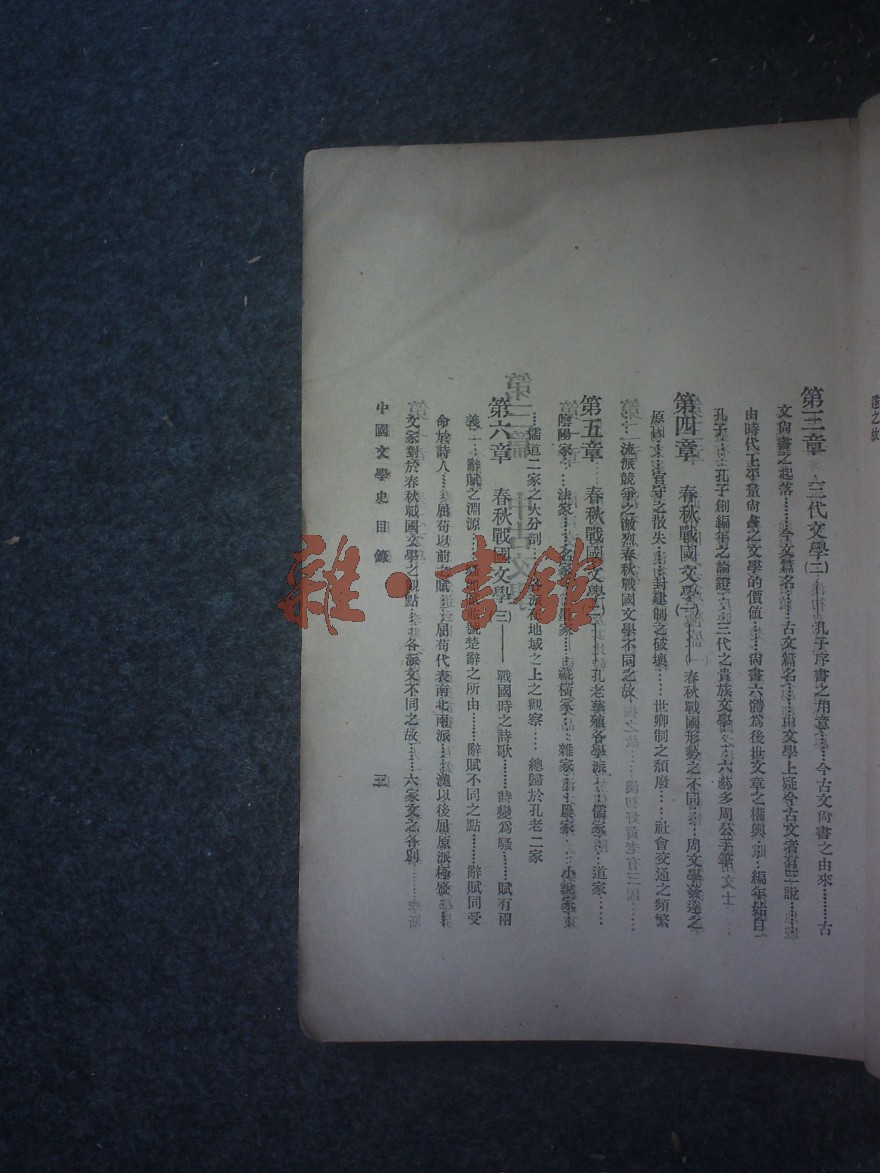 第三章 三代文學(二)——孔子序書之用意……今古文尙書之由來……古
文尙書之起落……今文篇名……古文篇名……由文學上疑今古文者有三說……
由時代上平量尙書之文學的價値……尙書六體爲後世文章之權輿……編年始自
孔子……孔子創編年之論證……三代之貴族文學……六藝多周公手筆
第四章 春秋戰國文學(一)——春秋戰國形勢之不同……周文學發達之
原因……官守之散失……封建制之破壞……世卿制之頹廢……社會交通之頻繁
……流派競爭之激烈春秋戰國文學不同之故
第五章 春秋戰國文學(二)——孔老墨殖各學派……儒家……道家……
陰陽家……法家……名家……墨家……縱橫家……雜家……農家……小說家
……儒道二家之大分剖……各派在地域之上之觀察……總歸於孔老二家
第六章 春秋戰國文學(三)——戰國時之詩歌……詩變爲騷……賦有兩
義……辭賦之淵源……號楚辭之所由……辭賦不同之點……辭賦同受
命於詩人……屈荀以前之賦……屈荀代表南北兩派……漢以後屈原派極盛……
文家對於春秋戰國文學之觀點……各派文不同之故……六家文之各別
中國文學史目錄
三
雜·書館